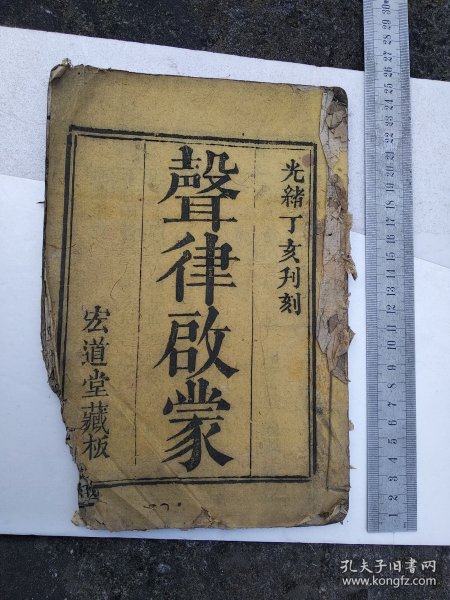 光緒丁亥刋刻
聲律啟蒙
宏道堂藏板
1 2 3 4 5 6 7 8 9 10 11 12 13 14 15 16 17 18 19 20 21 22 23 24 25 26 27 28 29 30
孔夫子旧书网
www.kongfz.com